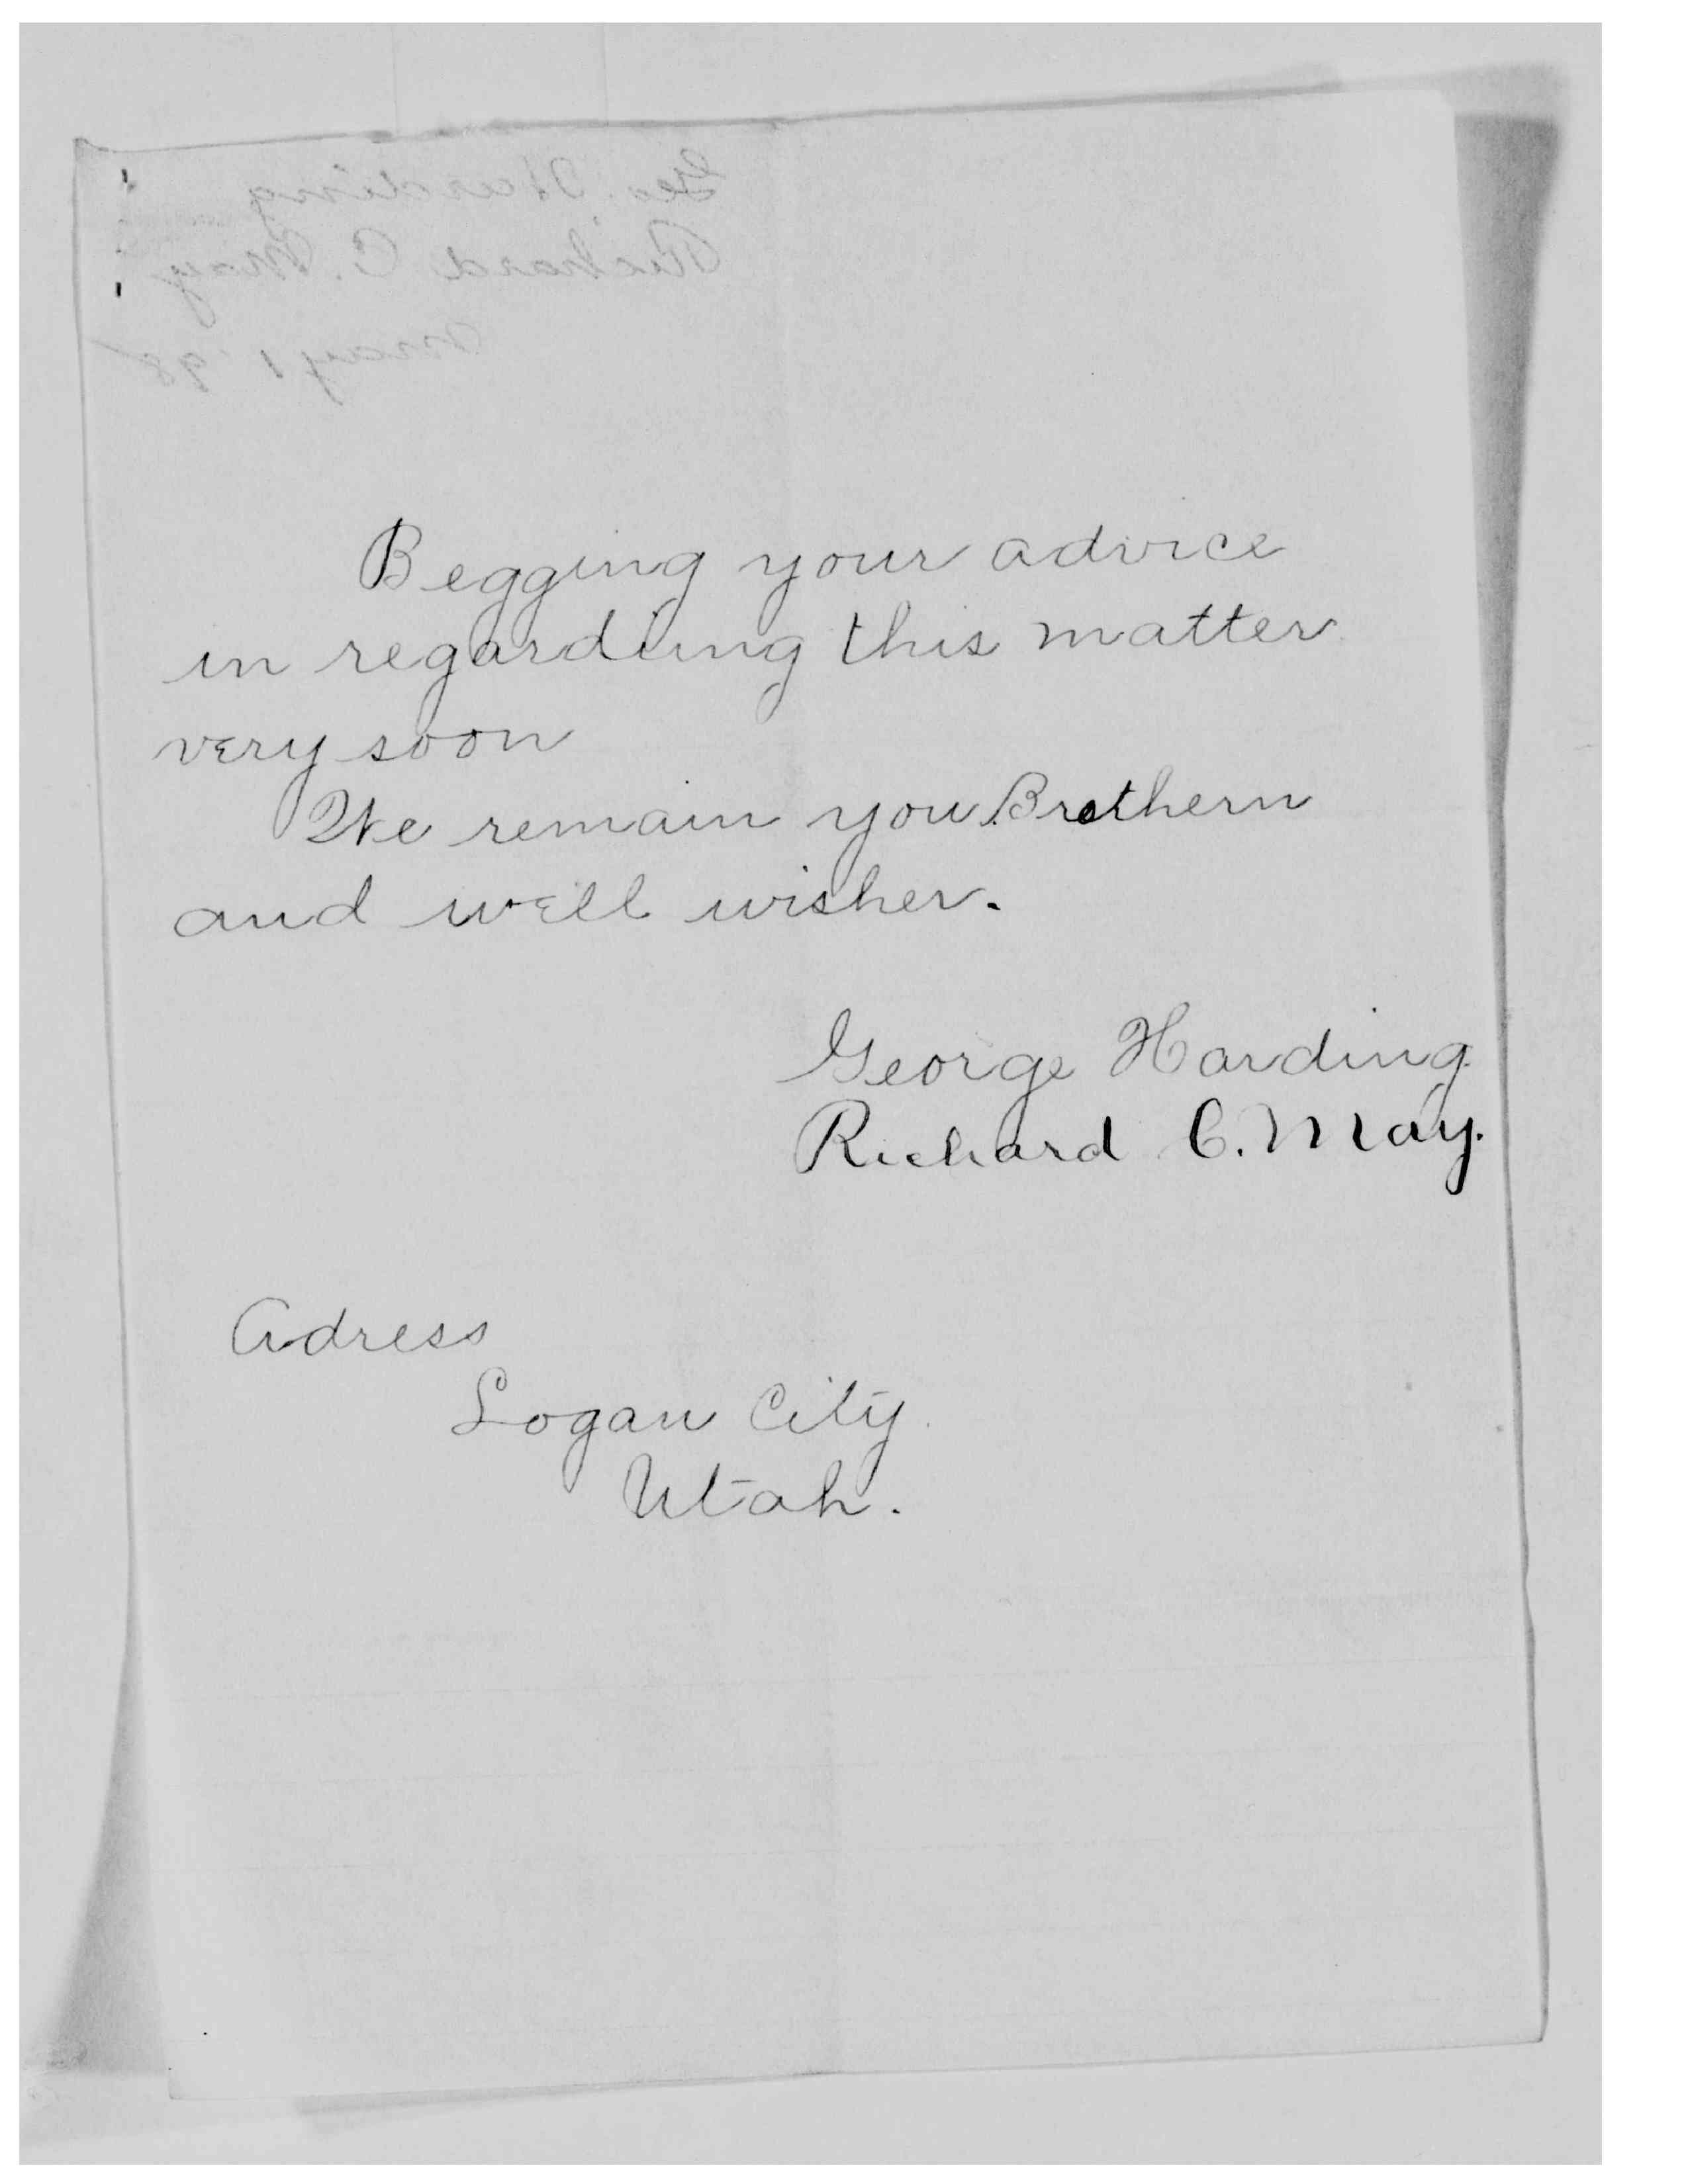 Geo. Harding
Richard C. May
May 1 '98
Begging your advice
in regarding this matter
very soon
We remain you Brothern
and well wisher.
George Harding
Richard C. May.
Adress
Logan City.
Utah.